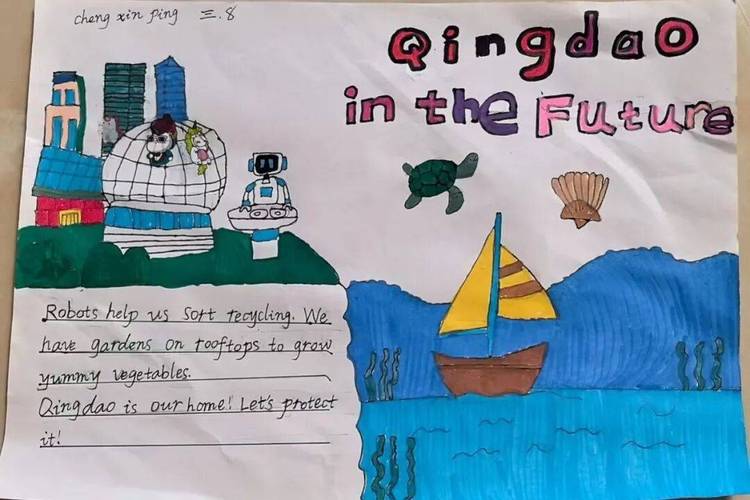 cheng xin ping 三.8
Qingdao
in the Future
Robots help us sort recycling. We
have gardens on rooftops to grow
yummy vegetables.
Qingdao is our home! Let's protect
it!